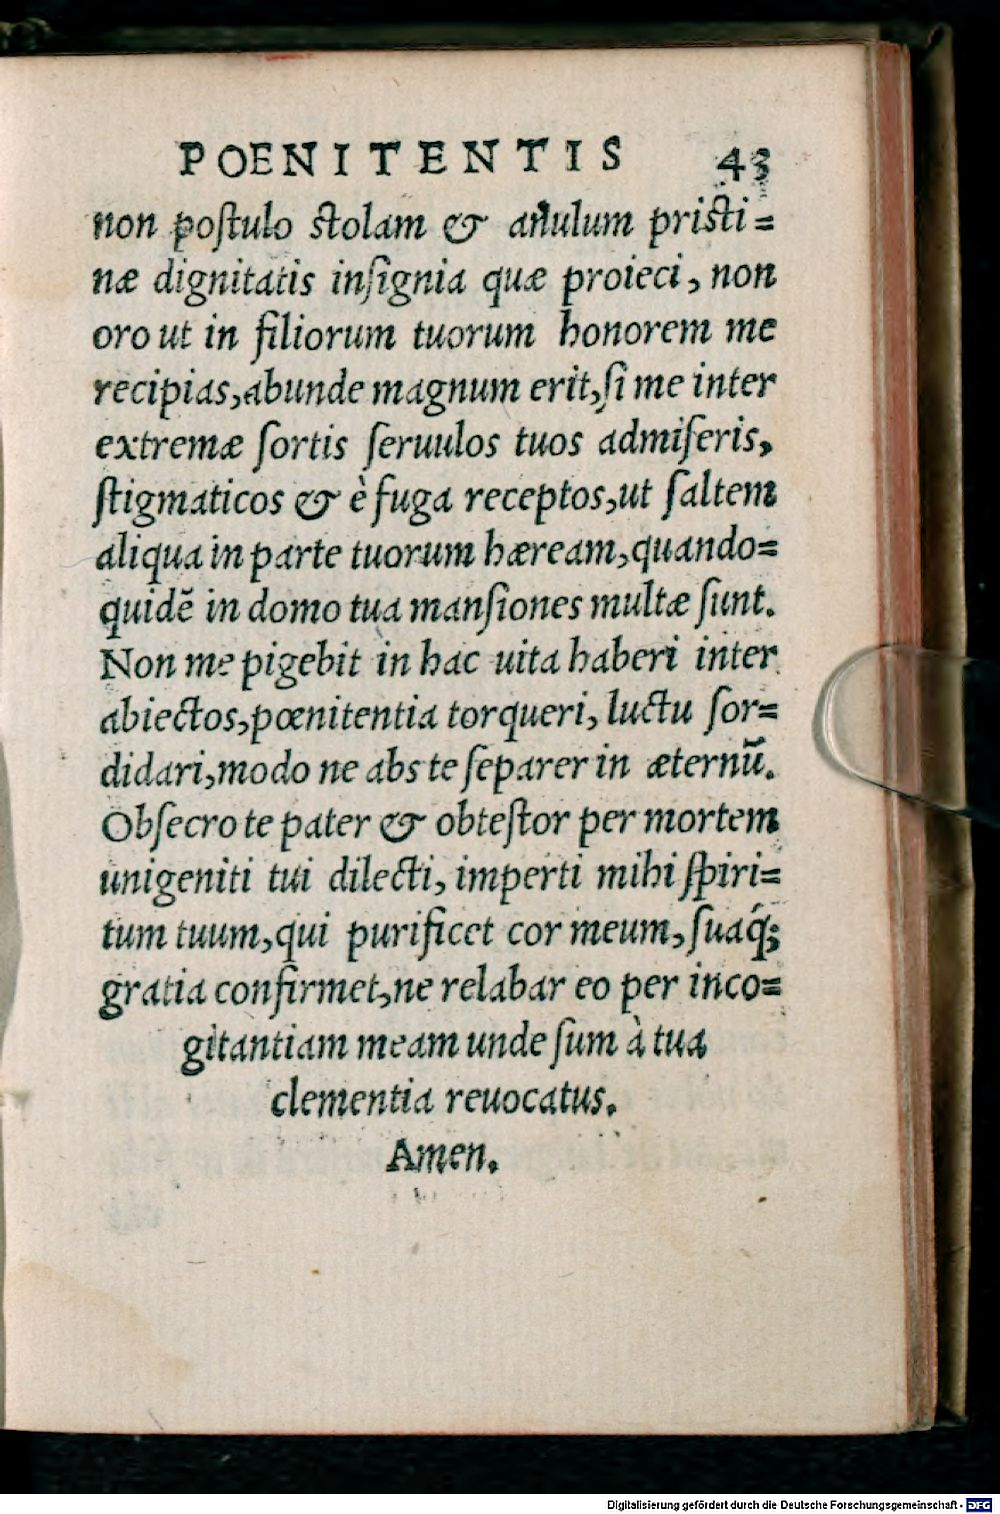 POENITENTIS 43
non poſtulo stolam & anulum pristi=
næ dignitatis inſignia quæ proieci, non
oro ut in filiorum tuorum honorem me
recipias, abunde magnum erit, ſi me inter
extremæ ſortis ſeruulos tuos admiſeris,
ſtigmaticos & è fuga receptos, ut ſaltem
aliqua in parte tuorum hæream, quando=
quidē in domo tua manſiones multæ ſunt.
Non me pigebit in hac uita haberi inter
abiectos, pœnitentia torqueri, luctu ſor=
didari, modo ne abs te ſeparer in æternū.
Obſecro te pater & obteſtor per mortem
unigeniti tui dilecti, imperti mihi ſpiri=
tum tuum, qui purificet cor meum, ſuaq́;
gratia confirmet, ne relabar eo per inco=
gitantiam meam unde ſum à tua
clementia reuocatus.
Amen.
Digitalisierung gefördert durch die Deutsche Forschungsgemeinschaft - DFG